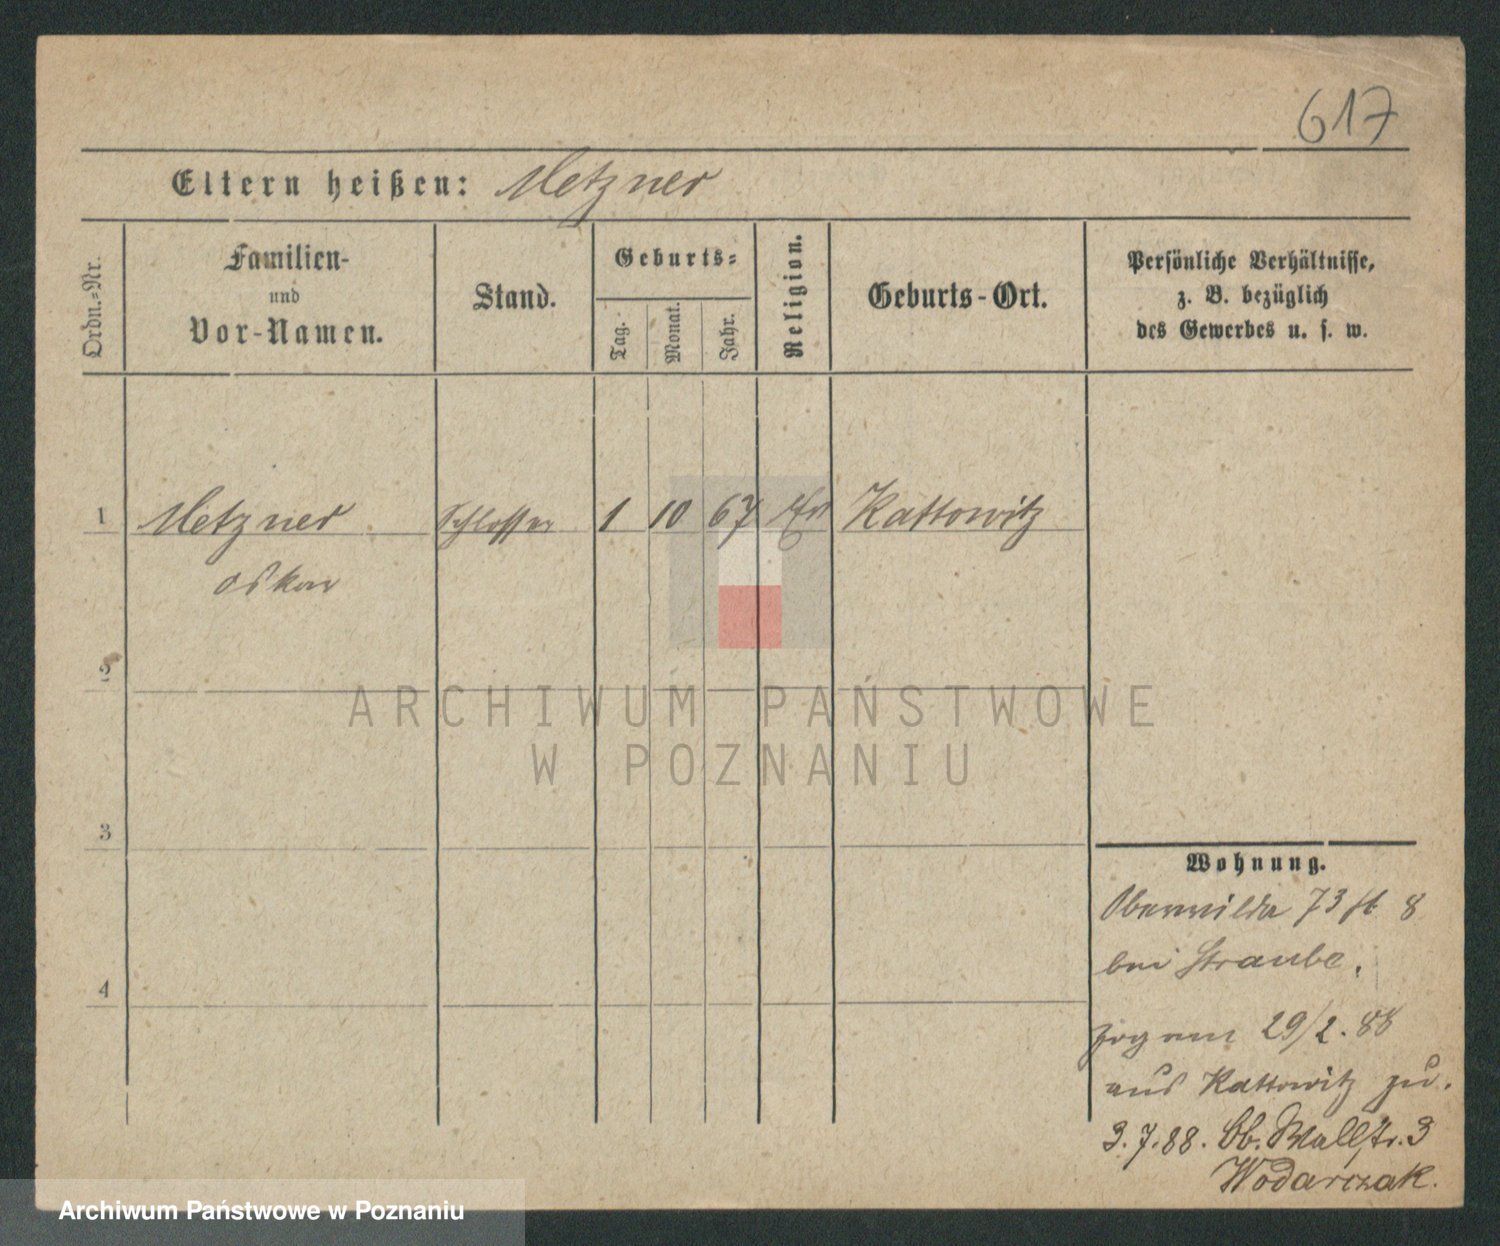 617
Eltern heißen: Metzner
Ordn.=Nr.
Familien-
und
Vor-Namen.
Stand.
Geburts=
Tag.
Monat.
Jahr.
Religion.
Geburts-Ort.
Persönliche Verhältnisse,
z. B. bezüglich
des Gewerbes u. s. w.
1 Metzner Schlosser 1 10 67 Kattowitz
Oskar
2
3
4
Wohnung.
Oberwilda 73 8
bei Straube.
zog am 29/2. 88
aus Kattowitz zu.
3.7.88. Ob. Wallstr. 3
Wodarczak.
ARCHIWUM PAŃSTWOWE
W POZNANIU
Archiwum Państwowe w Poznaniu